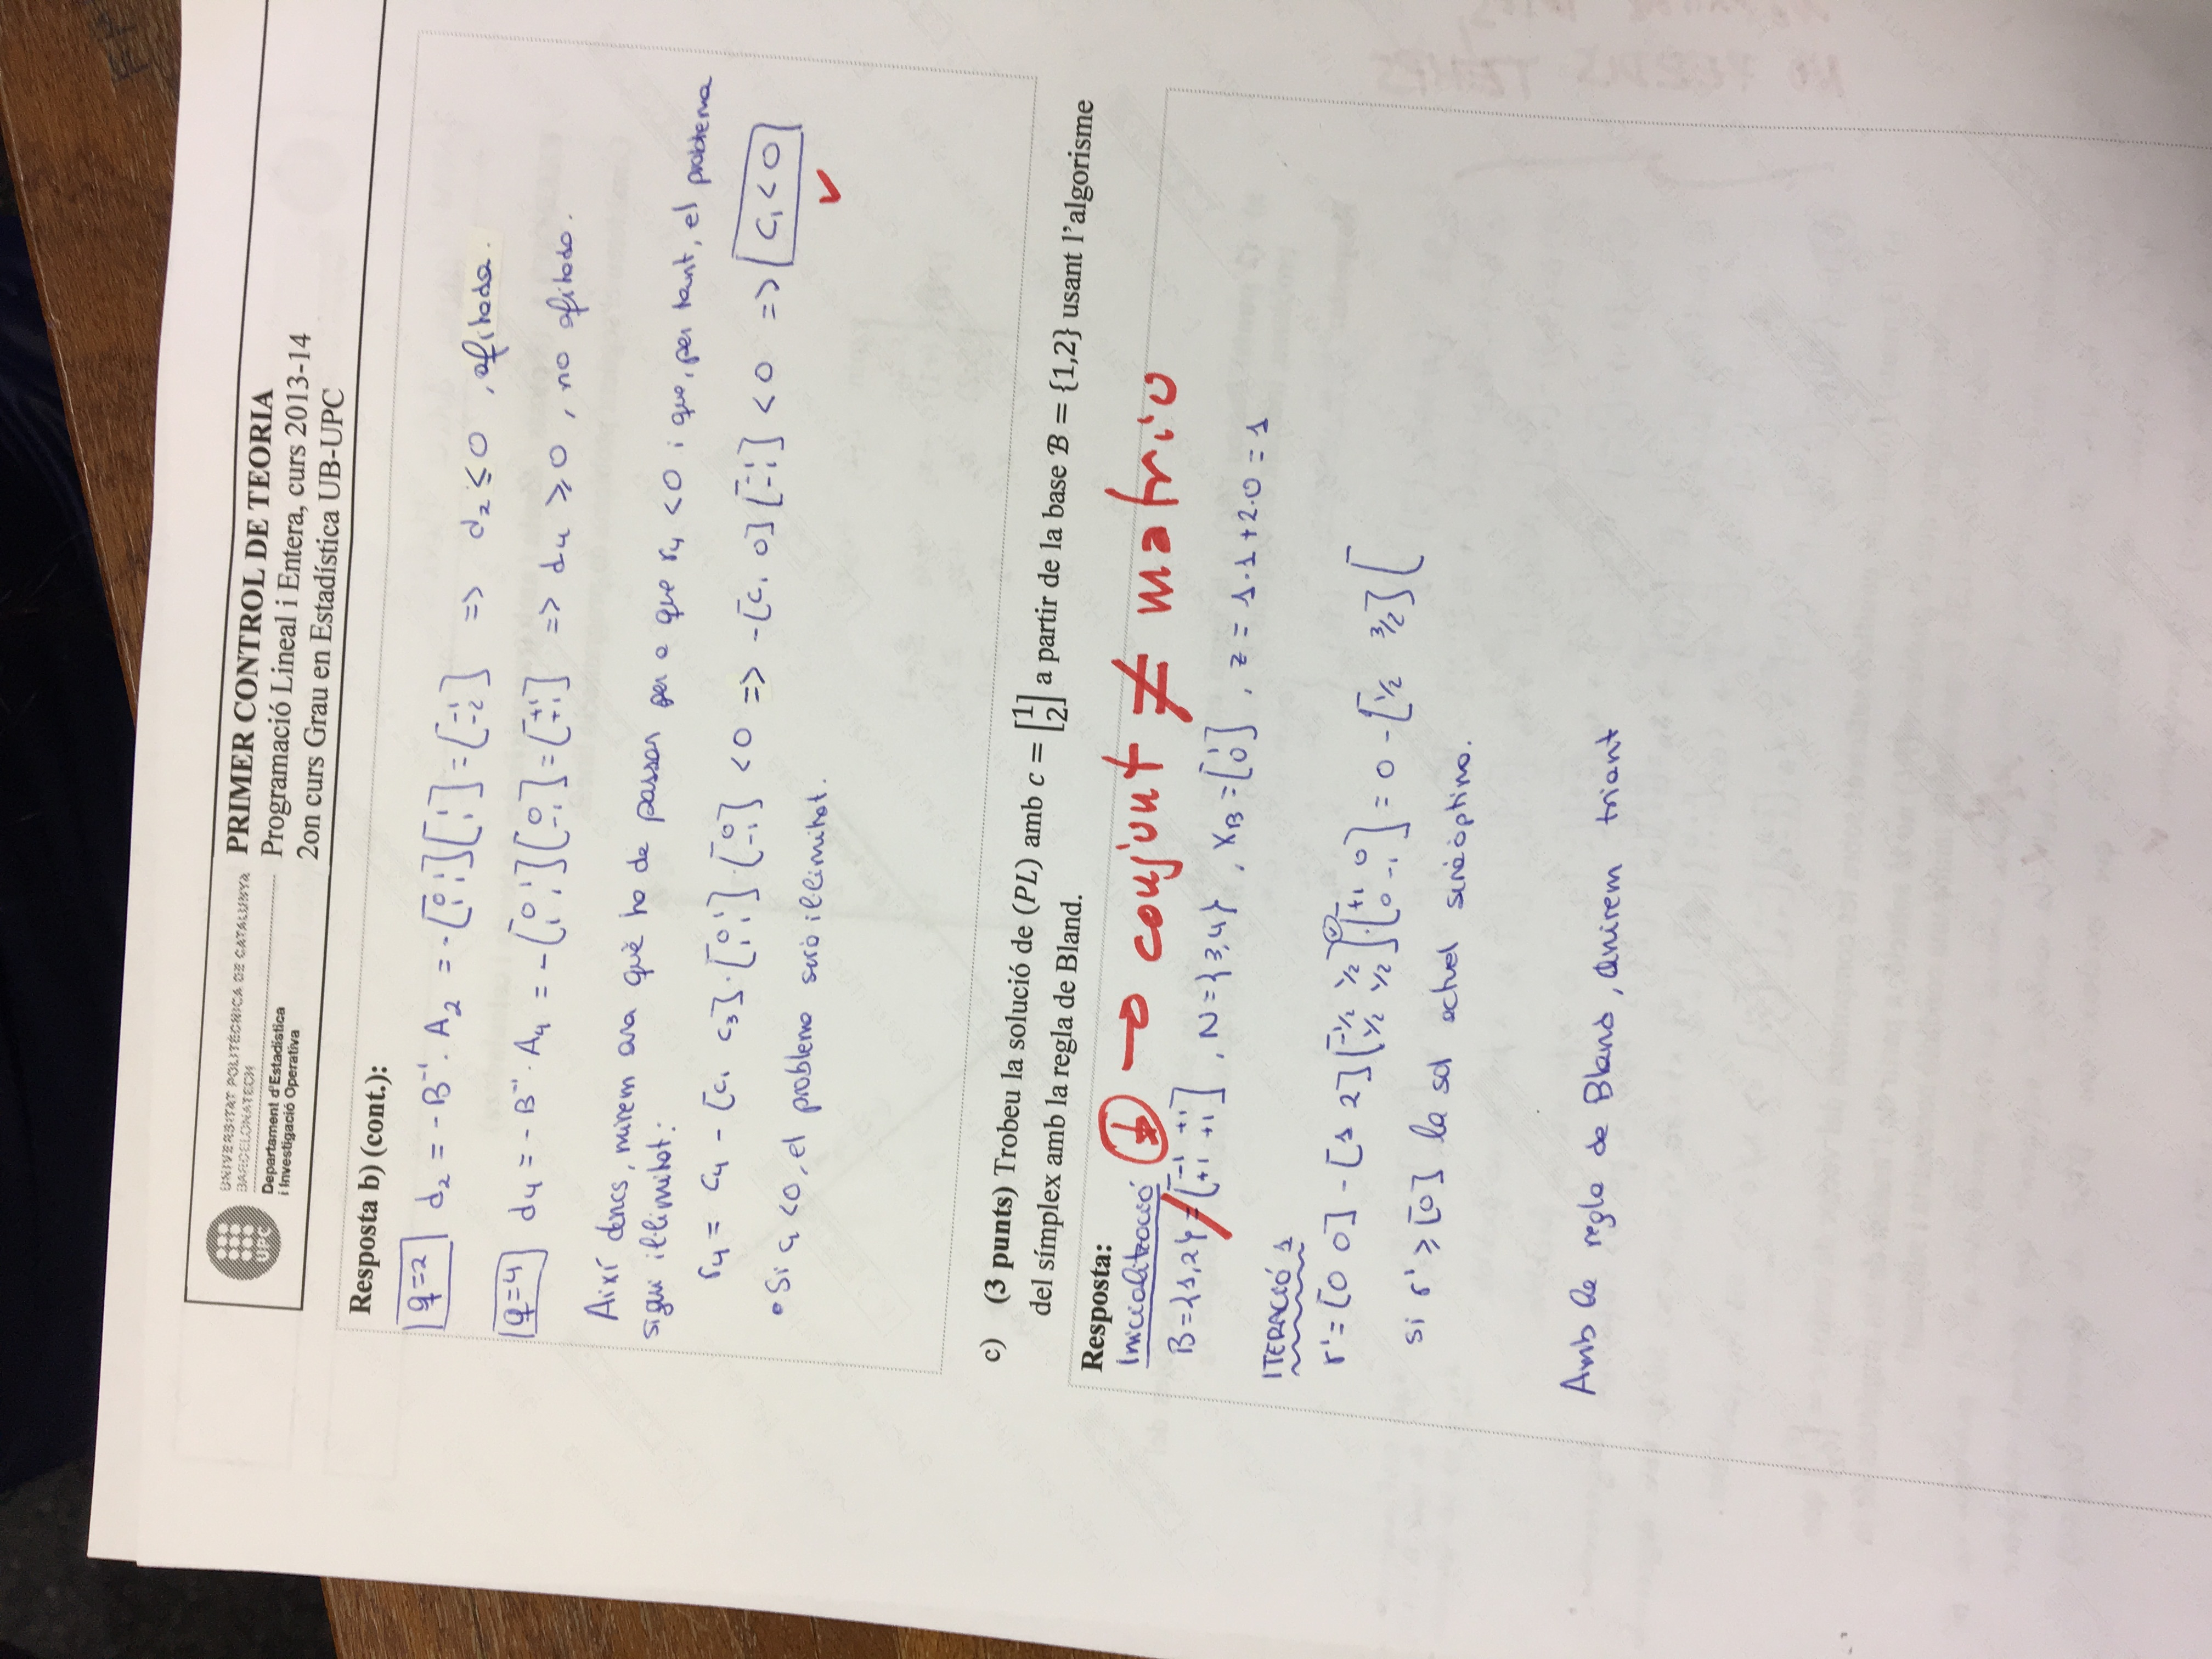 UNIVERSITAT POLITÈCNICA DE CATALUNYA
BARCELONATECH
UPC
Departament d'Estadística
i Investigació Operativa
PRIMER CONTROL DE TEORIA
Programació Lineal i Entera, curs 2013-14
2on curs Grau en Estadística UB-UPC
Resposta b) (cont.):
q=2 d₂ = -B⁻¹·A₂ = -[0 1; 1 1][1; 1] = [-1; -2] => d₂ ≤ 0, afitada.
q=4 d₄ = -B⁻¹·A₄ = -[0 1; 1 1][0; -1] = [+1; +1] => d₄ ≥ 0, no afitada.
Així doncs, mirem ara què ha de passar per a que r₄ < 0 i que, per tant, el problema
sigui il·limitat:
r₄ = c₄ - [c₁ c₃]·[0 1; 1 1]·[0; -1] < 0 => -[c₁ 0][-1; -1] < 0 => c₁ < 0
• Si c₁ < 0, el problema serà il·limitat.
c) (3 punts) Trobeu la solució de (PL) amb c = [1; 2] a partir de la base ℬ = {1,2} usant l'algorisme
del símplex amb la regla de Bland.
Resposta:
Inicialització → conjunt ≠ matriu
B={1,2} = [-1 +1; +1 +1], N={3,4}, X_B = [1; 0], z = 1·1+2·0 = 1
ITERACIÓ 1
r' = [0 0] - [1 2][-1/2 1/2; 1/2 1/2]·[+1 0; 0 -1] = 0 - [1/2 3/2][
si r' ≥ [0] la sol actual serà òptima.
Amb la regla de Bland, anirem triant